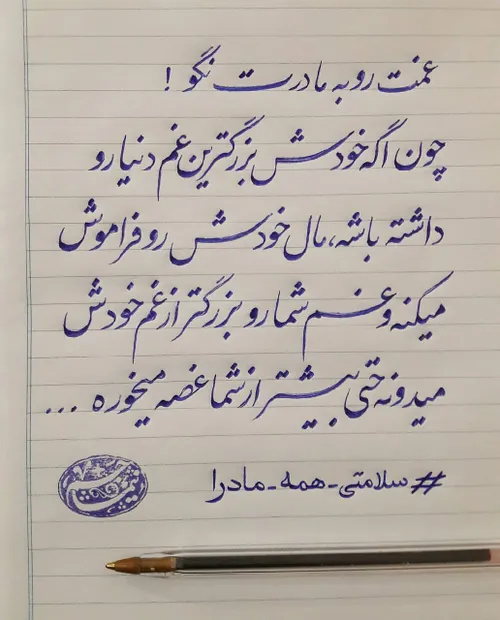 غمت رو به مادرت نگو !
چون اگه خودش بزرگترین غم دنیا رو
داشته باشه، مال خودش رو فراموش
میکنه و غم شما رو بزرگتر از غم خودش
میدونه حتی بیشتر از شما غصه میخوره ...
#سلامتی-همه-مادرا